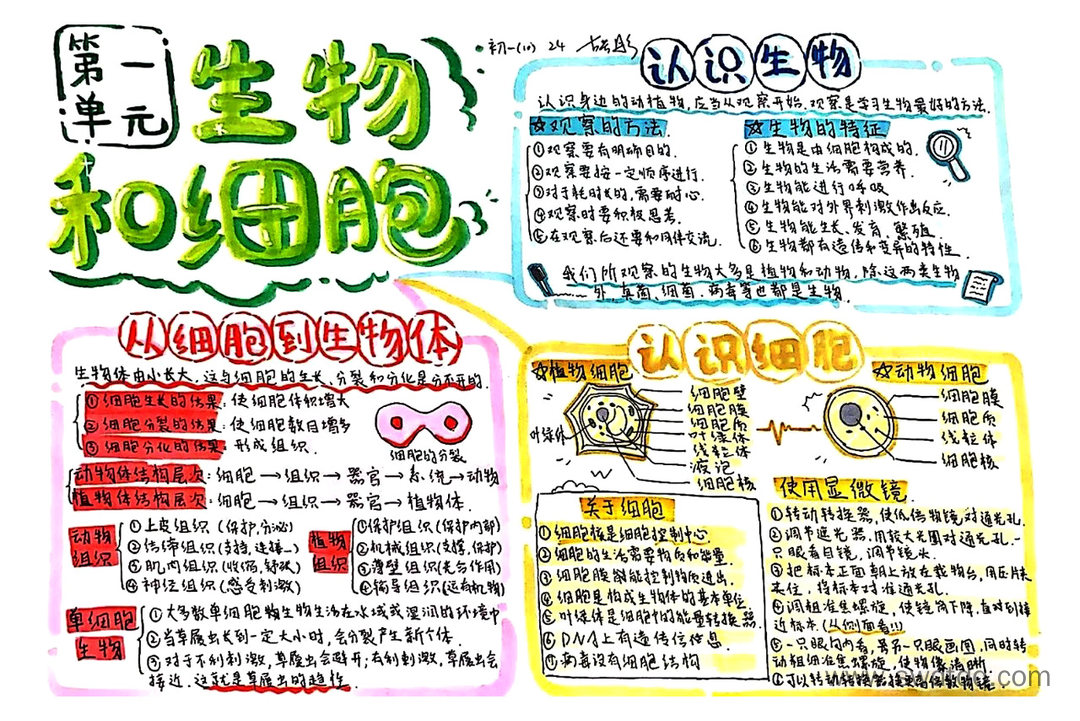 第一
单元
生物
和细胞
初一(10) 24
认识生物
认识身边的动植物,应当从观察开始.观察是学习生物最好的方法.
☆观察的方法.
①观察要有明确目的.
②观察要按一定顺序进行.
③对于耗时长的,需要耐心.
④观察时要积极思考.
⑤在观察后还要和同伴交流.
☆生物的特征
①生物是由细胞构成的.
②生物的生活需要营养.
③生物能进行呼吸
④生物能对外界刺激作出反应.
⑤生物能生长、发育、繁殖.
⑥生物都有遗传和变异的特性.
我们所观察的生物大多是植物和动物,除这两类生物
外,真菌、细菌.病毒等也都是生物.
从细胞到生物体
生物体由小长大,这与细胞的生长、分裂和分化是分不开的.
①细胞生长的结果:使细胞体积增大
②细胞分裂的结果:使细胞数目增多
③细胞分化的结果:形成组织.
细胞的分裂
动物体结构层次:细胞→组织→器官→系统→动物
植物体结构层次:细胞→组织→器官→植物体.
动物
组织
①上皮组织(保护,分泌)
②结缔组织(支持,连接…)
③肌肉组织(收缩,舒张)
④神经组织(感受刺激)
植物
组织
①保护组织(保护内部)
②机械组织(支撑,保护)
③薄壁组织(光合作用)
④输导组织(运有机物)
单细胞
生物
①大多数单细胞生物生活在水域或湿润的环境中
②当草履虫长到一定大小时,会分裂产生新个体.
③对于不利刺激,草履虫会避开;有利刺激,草履虫会
接近.这就是草履虫的趋性.
认识细胞
☆植物细胞
细胞壁
细胞膜
细胞质
叶绿体
线粒体
液泡
细胞核
叶绿体
☆动物细胞
细胞膜
细胞质
线粒体
细胞核
关于细胞
①细胞核是细胞控制中心.
②细胞的生活需要物质和能量.
③细胞膜能控制物质进出.
④细胞是构成生物体的基本单位.
⑤叶绿体是细胞中的能量转换器.
⑥DNA上有遗传信息.
⑦病毒没有细胞结构
使用显微镜.
①转动转换器,使低倍物镜对通光孔.
②调节遮光器,用较大光圈对通光孔.一
只眼看目镜,调节镜头.
③把标本正面朝上放在载物台,用压片夹
夹住,将标本对准通光孔.
④调粗准焦螺旋,使镜筒下降,直到接
近标本.(从侧面看!!)
⑤一只眼向内看,另一只眼画图,同时转
动粗细准焦螺旋,使物像清晰